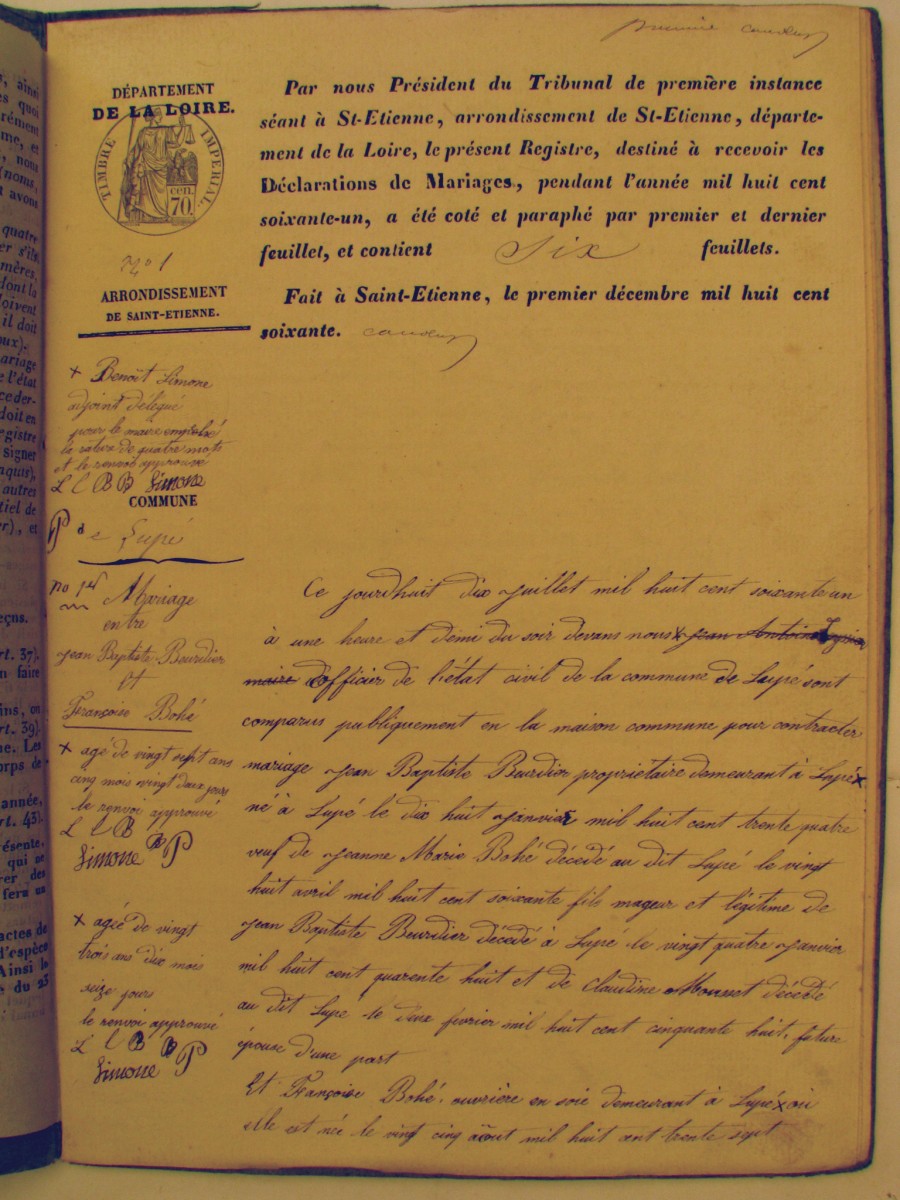 DÉPARTEMENT
DE LA LOIRE.
TIMBRE IMPÉRIAL
cen.
70.
No 1
ARRONDISSEMENT
DE SAINT-ETIENNE.
Par nous Président du Tribunal de première instance
séant à St-Etienne, arrondissement de St-Etienne, départe-
ment de la Loire, le présent Registre, destiné à recevoir les
Déclarations de Mariages, pendant l'année mil huit cent
soixante-un, a été coté et paraphé par premier et dernier
feuillet, et contient Six feuillets.
Fait à Saint-Etienne, le premier décembre mil huit cent
soixante.
x Benoît Simone
adjoint délégué
pour le maire empeché
la rature de quatre mots
et le renvoi approuvé
L l B B Simone
COMMUNE
P d e Lupé
no 1er Mariage
entre
Jean Baptiste Beurdier
Et
Françoise Bohé
x agé de vingt sept ans
cinq mois vingt deux jours
le renvoi approuvé
L l B B
Simone P
x agée de vingt
trois ans dix mois
seize jours
le renvoi approuvé
L l B B
Simone P
Ce jourdhuit dix Juillet mil huit cent soixante un
à une heure et demi du soir devans nous x Jean Antoine
maire d'officier de l'état civil de la commune de Lupé sont
comparus publiquement en la maison commune pour contracter
mariage Jean Baptiste Beurdier propriétaire demeurant à Lupé x
né à Lupé le dix huit Janvier mil huit cent trente quatre
veuf de Jeanne Marie Bohé décédé au dit Lupé le vingt
huit avril mil huit cent soixante fils mageur et légitime de
Jean Baptiste Beurdier décédé à Lupé le vingt quatre Janvier
mil huit cent quarente huit et de Claudine Mousset décédé
au dit Lupé le deux fevrier mil huit cent cinquante huit, future
épouse d'une part
Et Françoise Bohé, ouvrière en soie demeurant à Lupé x ou
elle est née le vingt cinq août mil huit cent trente sept